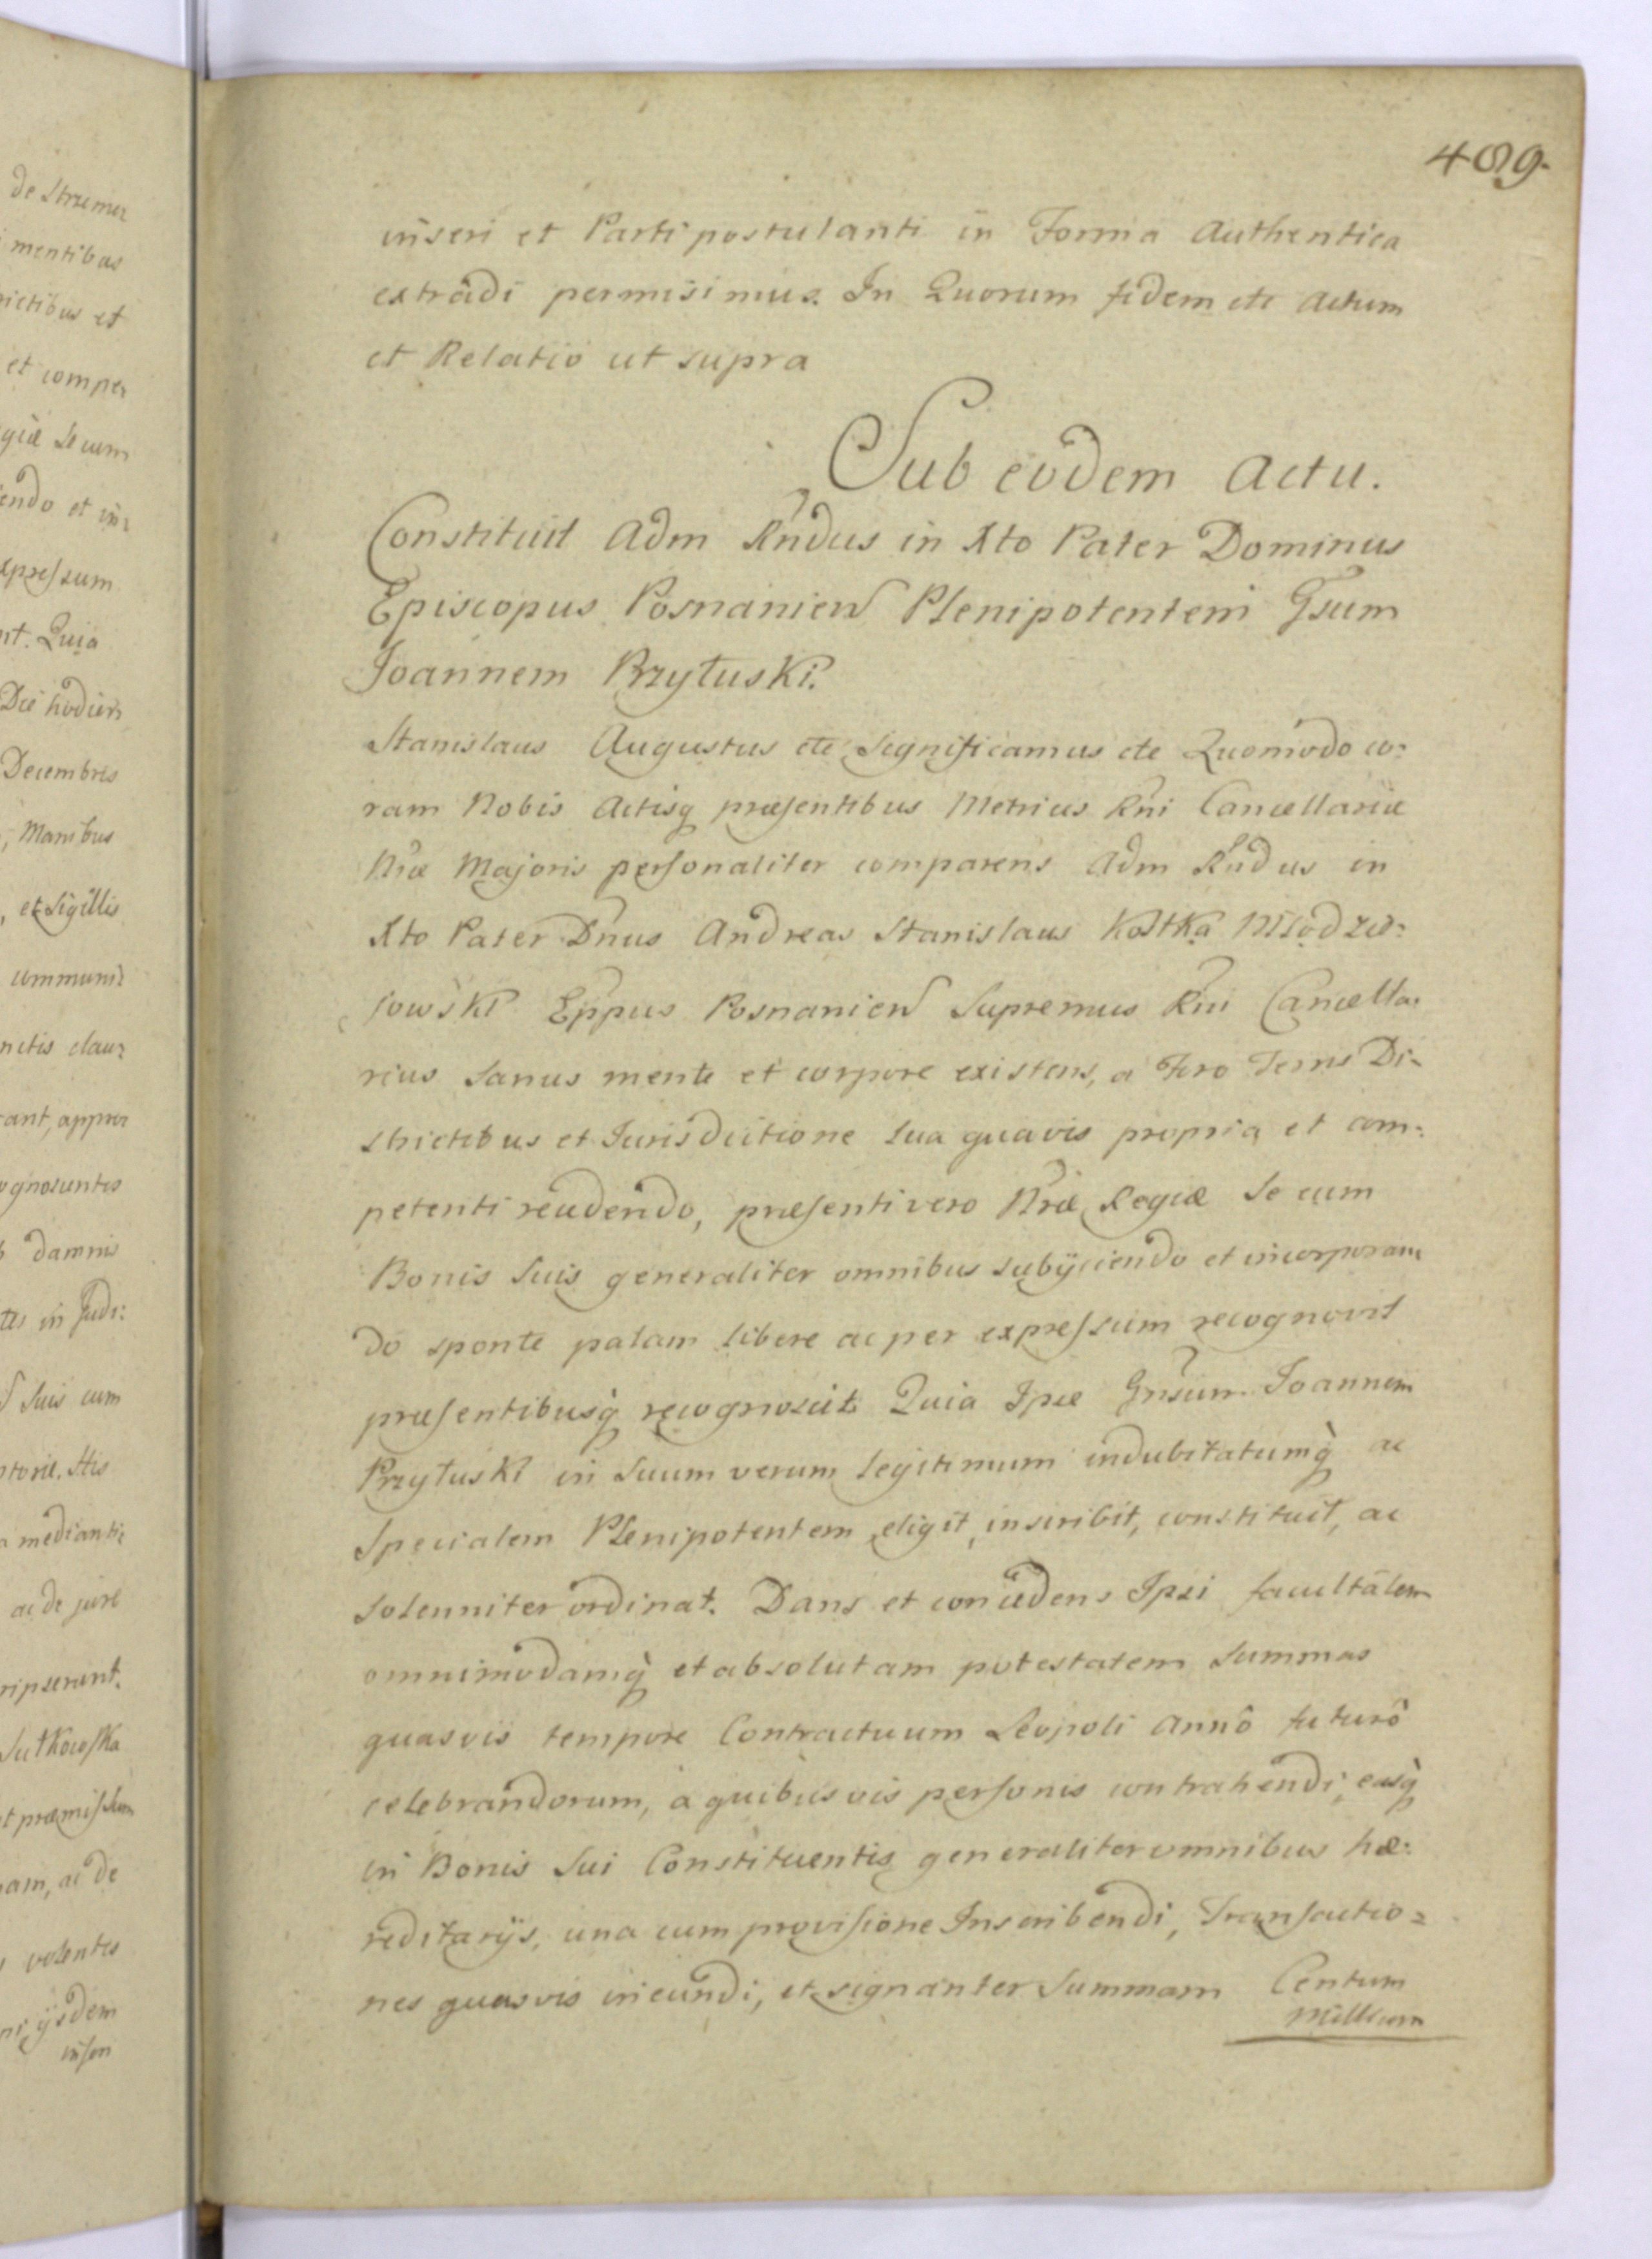 489.
inseri et Parti postulanti in Forma Authentica
extradi permisimus. In Quorum fidem etc Actum
et Relatio ut supra
Sub eodem Actu.
Constituit Adm Rndus in Xto Pater Dominus
Episcopus Posnanien Plenipotentem Gsum
Joannem Przyłuski.
Stanislaus Augustus etc Significamus etc Quomodo co:
ram Nobis Actisq præsentibus Metrices Rni Cancellariæ
Nræ Majoris personaliter comparens Adm Rndus in
Xto Pater Dnus Andreas Stanislaus Kostka Młodzie:
jowski Eppus Posnanien Supremus Rni Cancella:
rius Sanus mente et corpore existens, a Foro Terris Di-
strictibus et Jurisdictione sua quavis propria et com:
petenti recedendo, præsenti vero Nræ Regiæ se cum
Bonis Suis generaliter omnibus subijciendo et incorporan
do sponte palam libere ac per expressum recognovit
præsentibusq recognoscit. Quia Ipse Gnsum Joannem
Przyłuski in Suum verum legitimum indubitatumq ac
Specialem Plenipotentem eligit, inscribit, constituit, ac
solenniter ordinat. Dans et concedens Ipsi facultatem
omnimodamq et absolutam potestatem Summas
quasvis tempore Contractuum Leopoli Annô futurô
celebrandorum, à quibusvis personis contrahendi, easq
in Bonis Sui Constituentis generaliter omnibus hæ:
reditarijs, una cum provisione Inscribendi, Transactio=
nes quasvis ineundi, et signanter Summam Centum
Millium
de Strzemez
mentibus
rictibus et
et compe
giæ se cum
endo et in:
xpressum
nt. Quia
Die hodier
Decembris
Manibus
, et Sigillis
communi
nctis clau
rant, appro
ognoscentes
damnis
tes in Judi:
Suis cum
torie. His
mediantib
ac de jure
ripserunt.
Sutkowska
t præmissum
nam, ac de
volentes
ijsdem
inseri